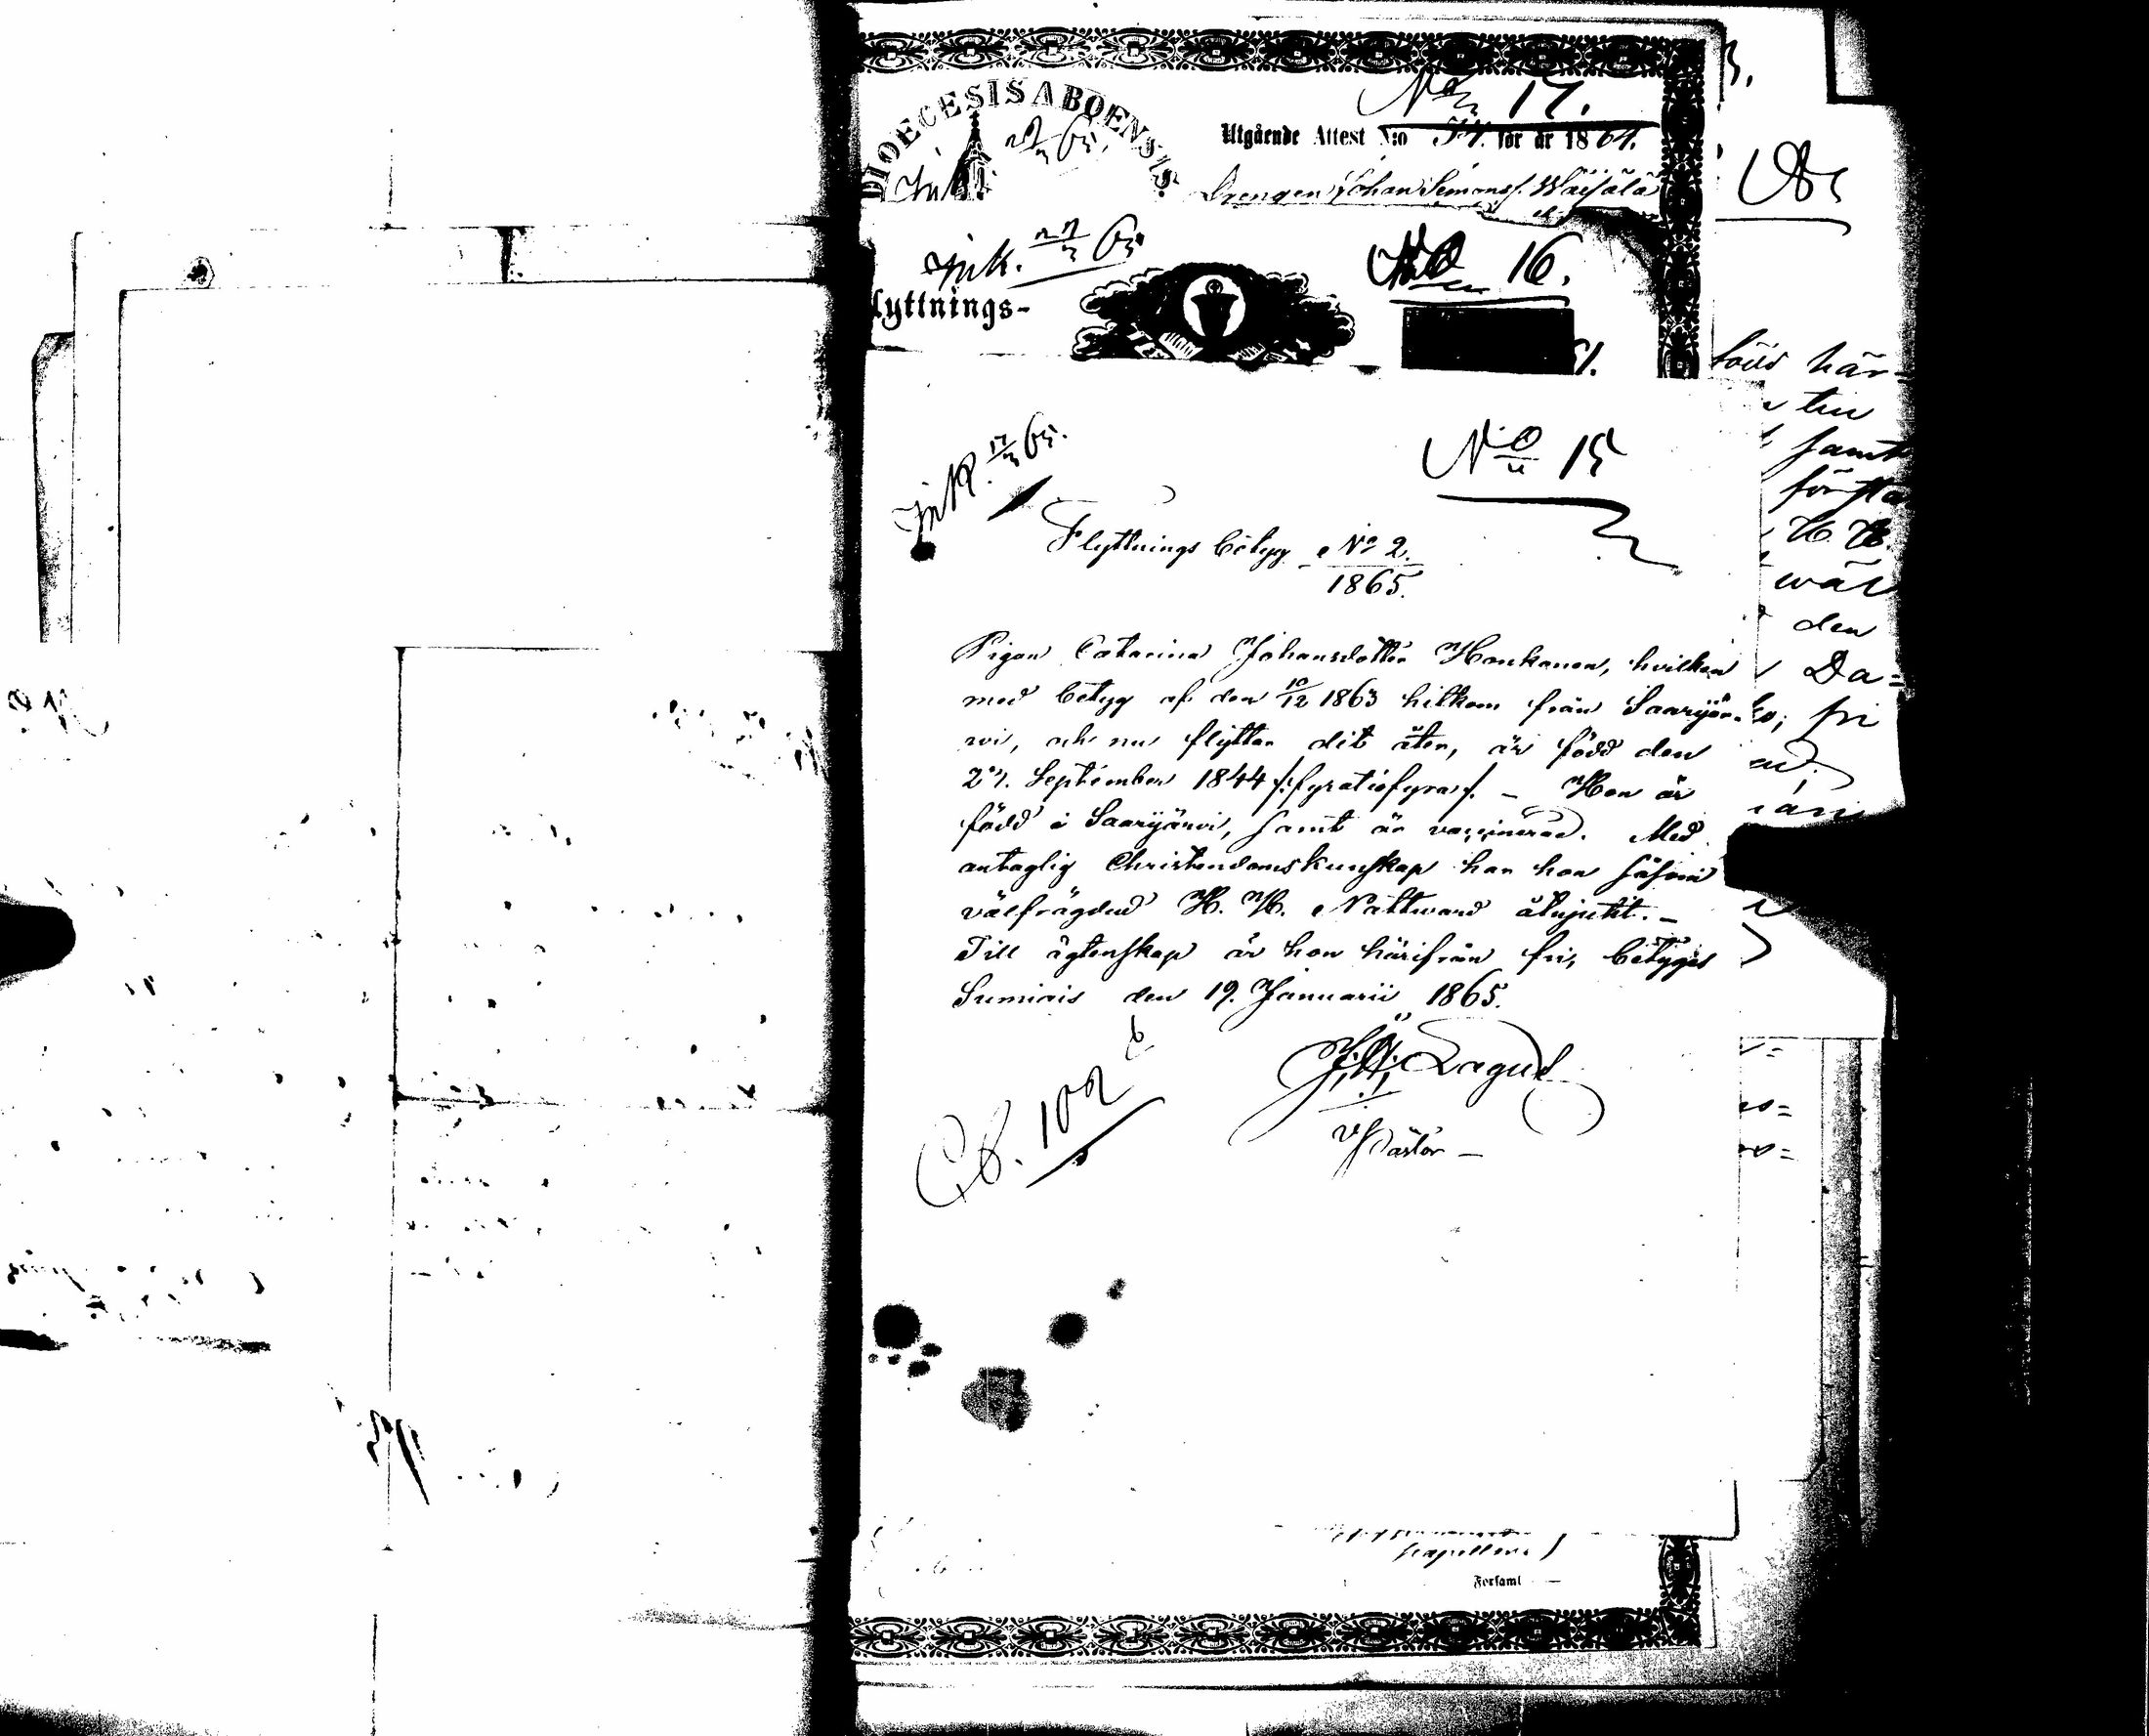 DIOECESIS ABOENSIS.
No 17.
Utgående Attest N:o 54. för år 1864.
Drengen Johan Simonss. Wäisälä
Ink. 27/3 65
No 16.
lyttnings-
Ink. 17/3 65.
No 15
Flyttnings betyg No 2.
1865.
Pigan Catarina Johansdotter Honkanen, hvilken
med betyg af den 10/12 1863 hitkom från Saarijär-
wi, och nu flyttar dit åter, är född den
27. September 1844 /:fyratiofyra/. – Hon är
född i Saarijärwi, samt är vaccinerad. Med
antaglig Christendomskunskap har hon såsom
välfrägdad H. H. Nattward åtnjutit. –
Till ägtenskap är hon härifrån fri, betyges
Sumiais den 19. Januarii 1865.
Lagus
V Pastor –
C.B. 102
här-
till
samt
H. H.
wäl
den
Da=
fri
Capellans
Forsaml